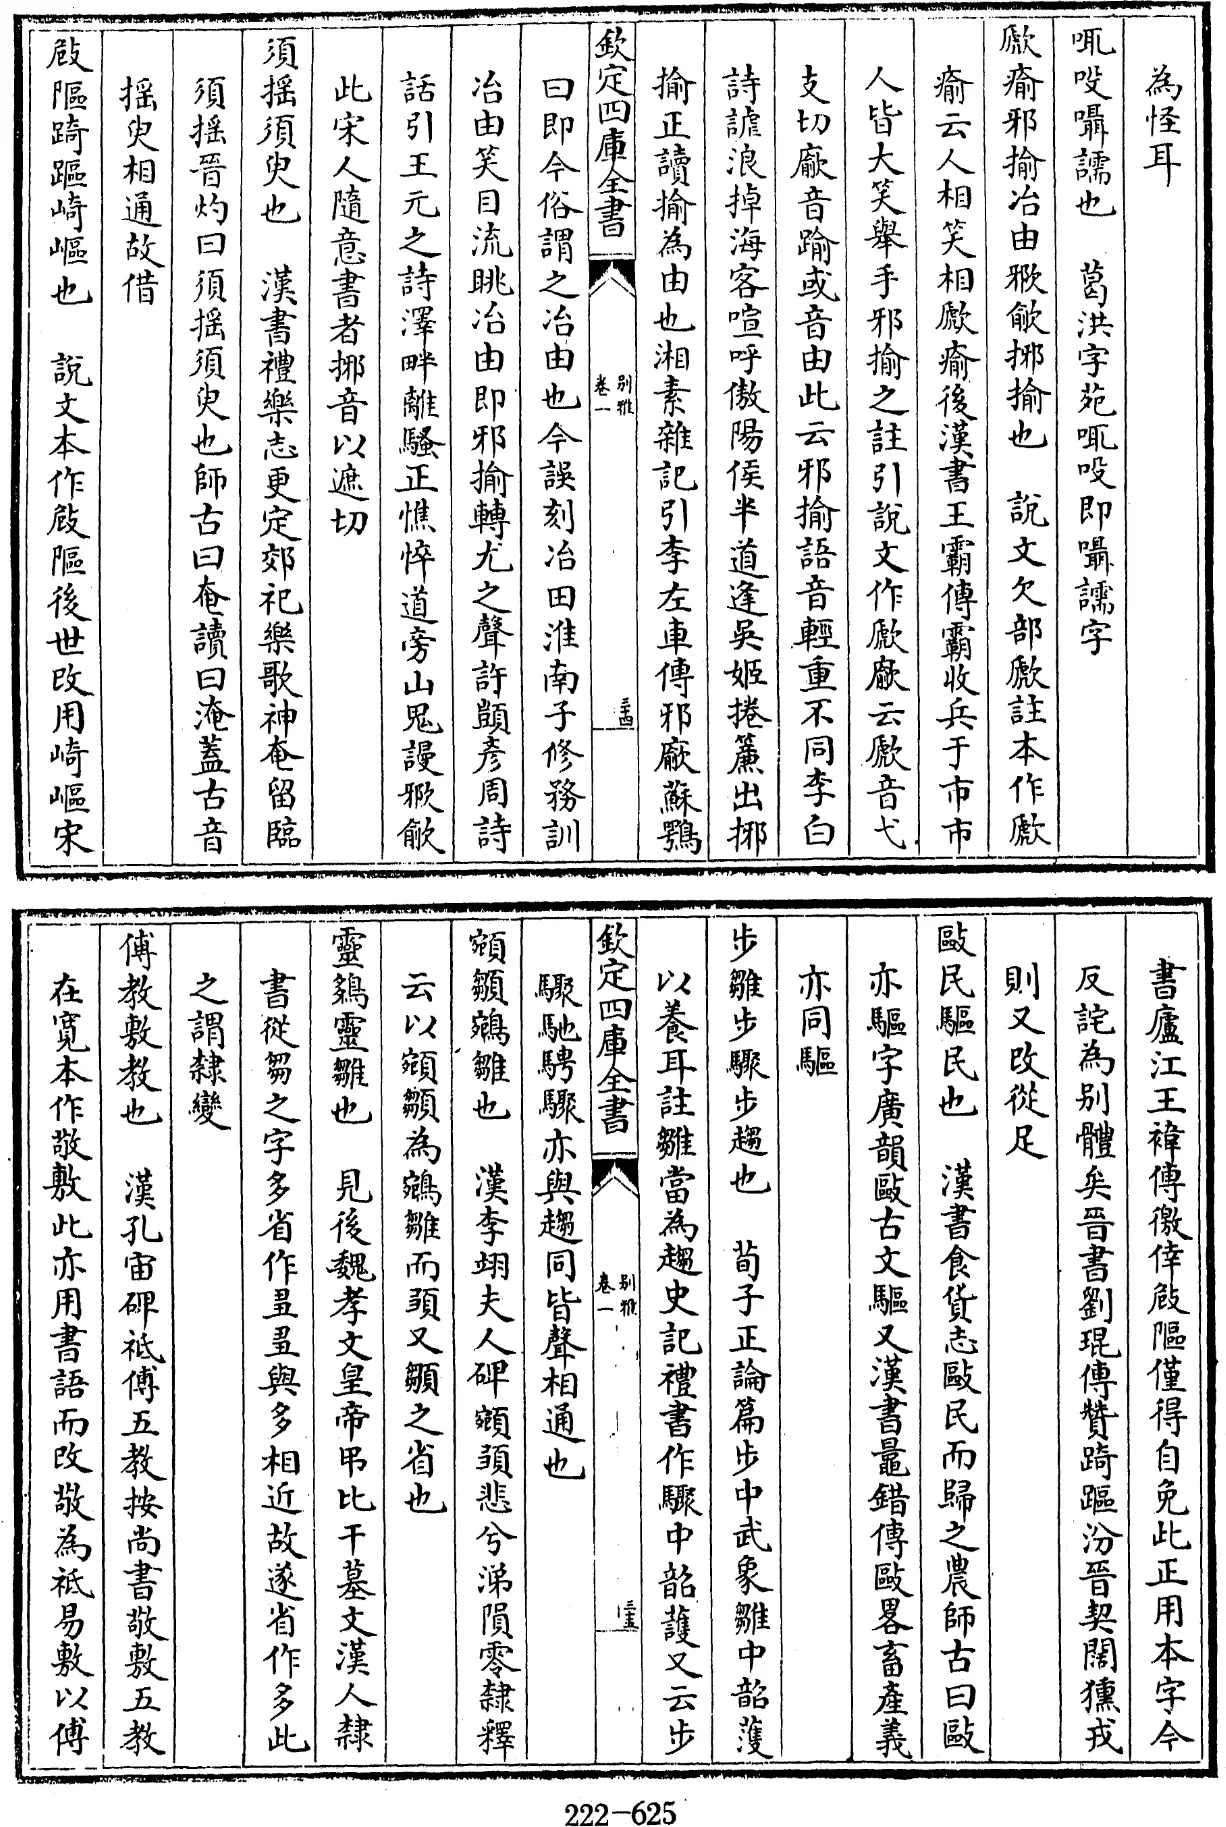 為怪耳
吜吺囁嚅也　葛洪字苑吜吺即囁嚅字
歋瘉邪揄冶由歋歈捓揄也　說文欠部歋註本作歋
瘉云人相笑相歋瘉後漢書王霸傳霸收兵于市市
人皆大笑舉手邪揄之註引說文作歋廞云歋音弋
支切廞音踰或音由此云邪揄語音輕重不同李白
詩謔浪掉海客喧呼傲陽侯半道逢吳姬捲簾出揶
揄正讀揄為由也湘素雜記引李左車傳邪廞蘇鶚
欽定四庫全書
別雅
卷一
三十四
曰即今俗謂之冶由也今誤刻冶田淮南子修務訓
冶由笑目流眺冶由即邪揄轉尤之聲許顗彥周詩
話引王元之詩澤畔離騷正憔悴道旁山鬼謾歋歈
此宋人隨意書者揶音以遮切
須搖須臾也　漢書禮樂志更定郊祀樂歌神奄留臨
須搖晉灼曰須搖須臾也師古曰奄讀曰淹蓋古音
搖臾相通故借
㩻䧢踦䠔崎嶇也　說文本作㩻䧢後世改用崎嶇宋
書廬江王褘傳徼倖㩻䧢僅得自免此正用本字今
反詫為別體矣晉書劉琨傳贊踦䠔汾晉契闊獯戎
則又改從足
敺民驅民也　漢書食貨志敺民而歸之農師古曰敺
亦驅字廣韻敺古文驅又漢書鼂錯傳敺畧畜產義
亦同驅
步雛步驟步趨也　荀子正論篇步中武象雛中韶濩
以養耳註雛當為趨史記禮書作驟中韶護又云步
欽定四庫全書
別雅
卷一
三十五
驟馳騁驟亦與趨同皆聲相通也
䫉䫅鵷雛也　漢李翊夫人碑䫉頭悲兮涕隕零隸釋
云以䫉䫅為鵷雛而頭又䫅之省也
靈鷄靈雛也　見後魏孝文皇帝弔比干墓文漢人隸
書從芻之字多省作丑丑與多相近故遂省作多此
之謂隸變
傅教敷教也　漢孔宙碑祗傅五教按尚書敬敷五教
在寬本作敬敷此亦用書語而改敬為祗易敷以傅
222-625